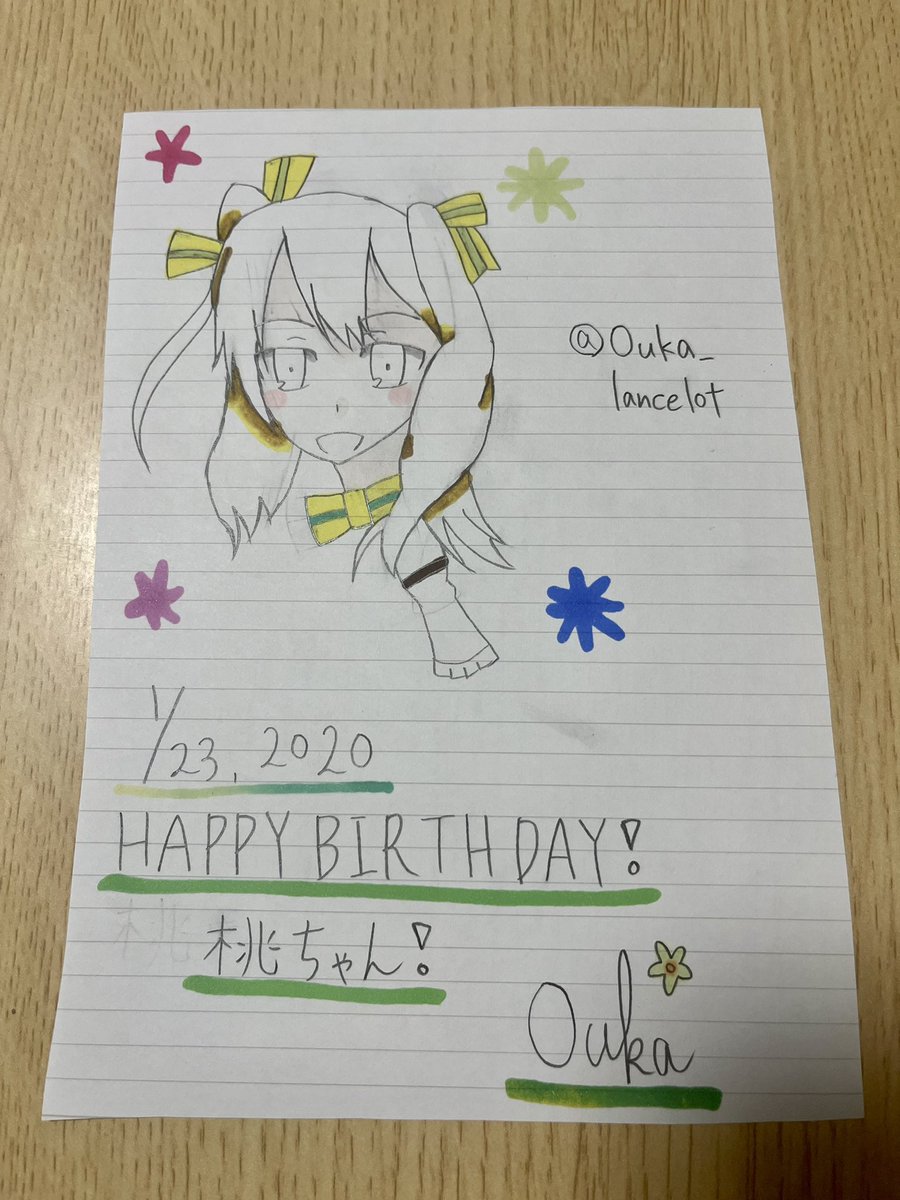 @Ouka_
lancelot
1/23, 2020
HAPPY BIRTHDAY!
桃ちゃん!
Ouka